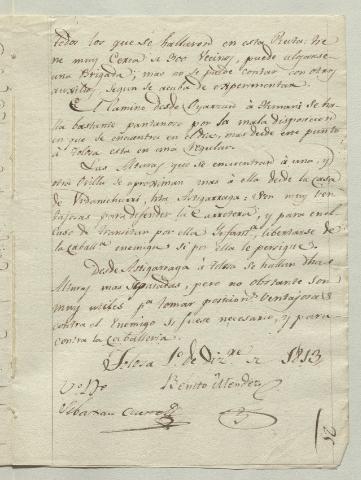 todos los que se hallaron en esta Ruta: tie
ne muy cerca de 300 Vecinos, puede alojarse
una Brigada; mas no se puede contar con otros
auxilios, segun se acaba de experimentar.
El Camino desde Oyarzun á Hernani se ha
lla bastante pantanoso por la mala disposicion
en que se encuentra en el dia, mas desde este punto
á Tolosa esta en una regular.
Las Alturas que se encuentran á una, y
otra Orilla se aproximan mas á ella desde la Casa
de hta Astigarraga: son muy ven
tajosas para defender la Carretera, y para en el
caso de transitar por ella Infantª libertarse de
la Caballª enemiga si por ella le persigue.
Desde Astigarraga á Tolosa se hallan dhas
Alturas mas separadas, pero no obstante son
muy utiles pª tomar posicions Ventajosas
contra el Enemigo si fuese necesario, y para
contra la Caballeria.
Tolosa 1º de Dizre de 1813
Vº Bº
Benito Mendez